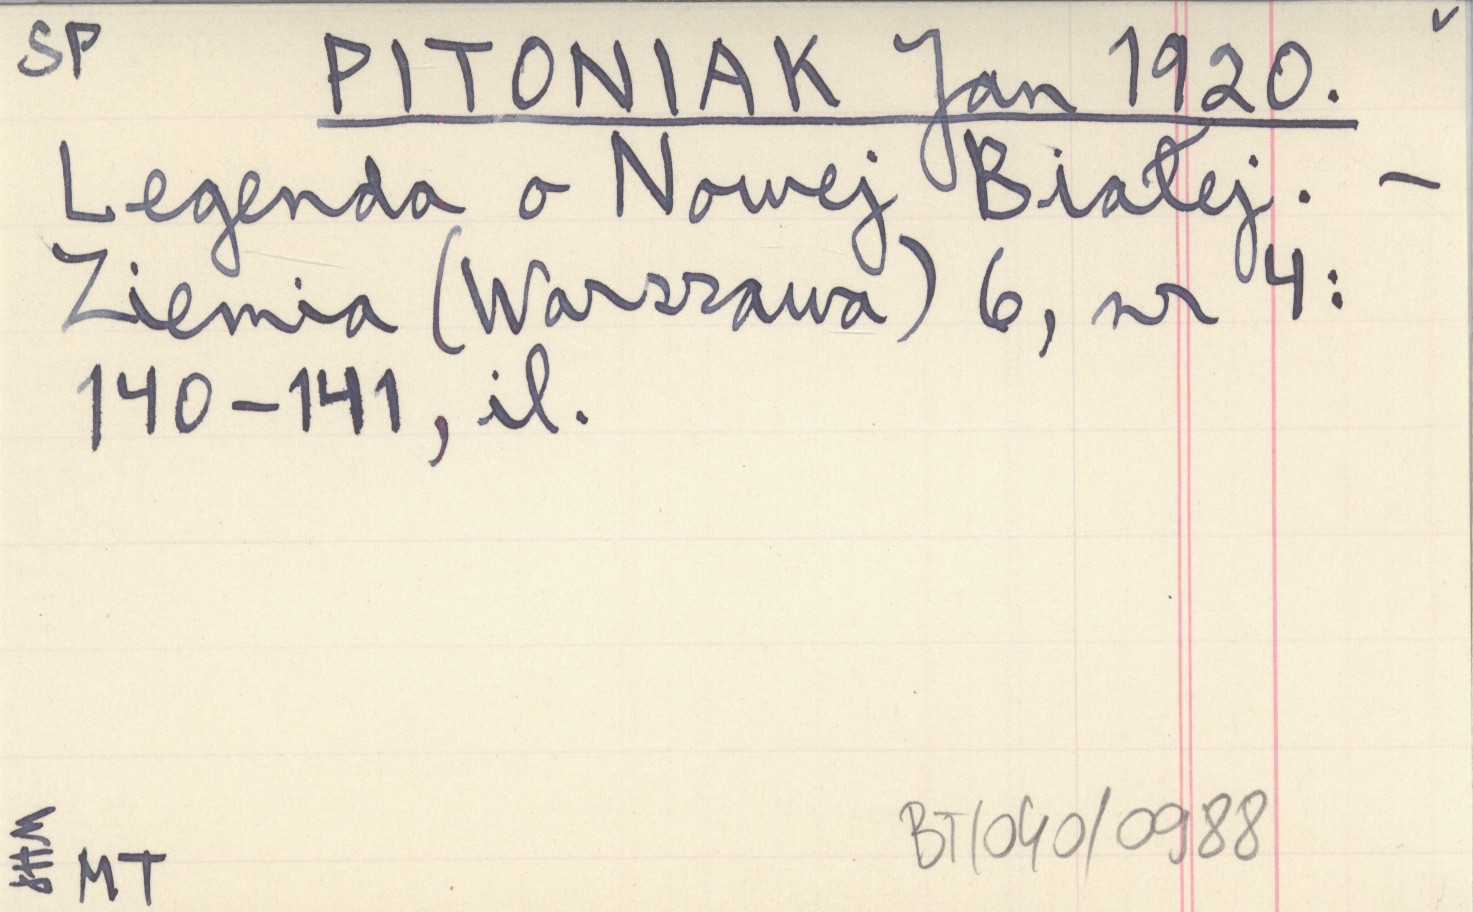 SP
PITONIAK Jan 1920.
Legenda o Nowej Białej. –
Ziemia (Warszawa) 6, nr 4:
140–141, il.
MT
BT/040/0988